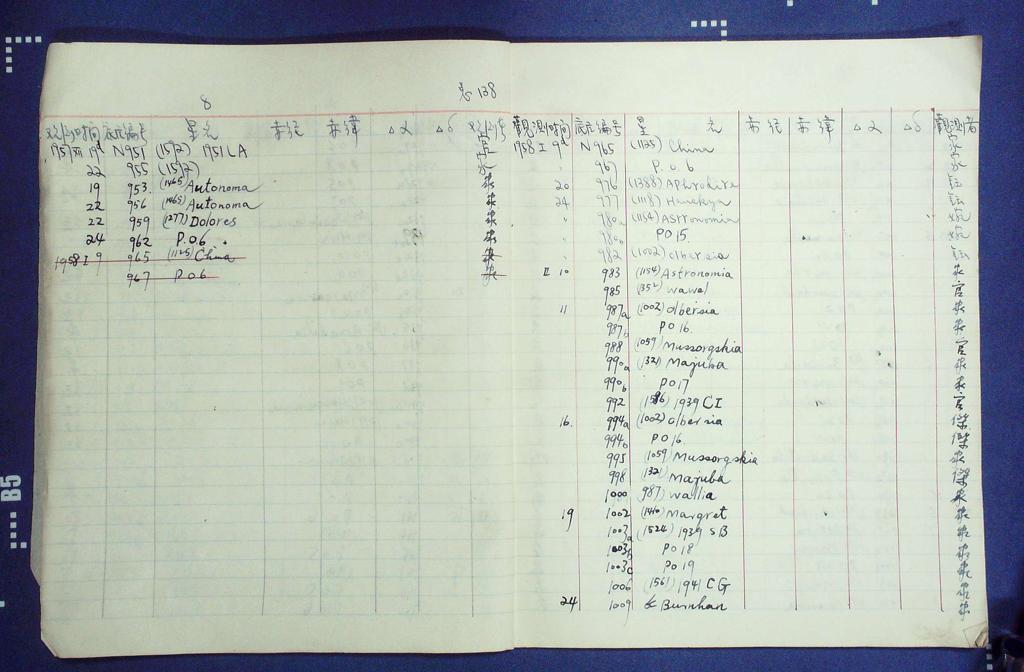 8
总 138
观测时间 底片编号 星名 赤经 赤纬 Δα Δδ
1957 XII 19 N951 (1572) 1951 LA
22 955 (1572)
19 953 (1465) Autonoma
22 956 (1465) Autonoma
22 959 (1277) Dolores
24 962 P.O.6
1958 I 9 965 (1125) China
967 P.O.6
觀測时间 底片编号 星名 赤经 赤緯 Δα Δδ 觀測者
1958 I 9 N965 (1125) China
967 P.O.6
20 976 (1388) Aphrodite
24 977 (1118) Hanskya
" 980a (1154) Astronomia
" 980b PO 15
" 982 (1002) Olbersia
II 10 983 (1154) Astronomia
985 (1352) Wawel 官
11 987a (1002) Olbersia
987b PO 16
988 (1059) Mussorgskia 官
990a (1321) Majuba
990b PO 17
992 (1586) 1939 CJ 官
16 994a (1002) Olbersia 傑
994b PO 16 傑
995 (1059) Mussorgskia
998 (1321) Majuba 傑
1000 (987) Wallia
19 1002 (1410) Margret
1003a (1524) 1939 SB
1003b PO 18
1003c PO 19
1006 (1561) 1941 CG
24 1009 Burnham
B5